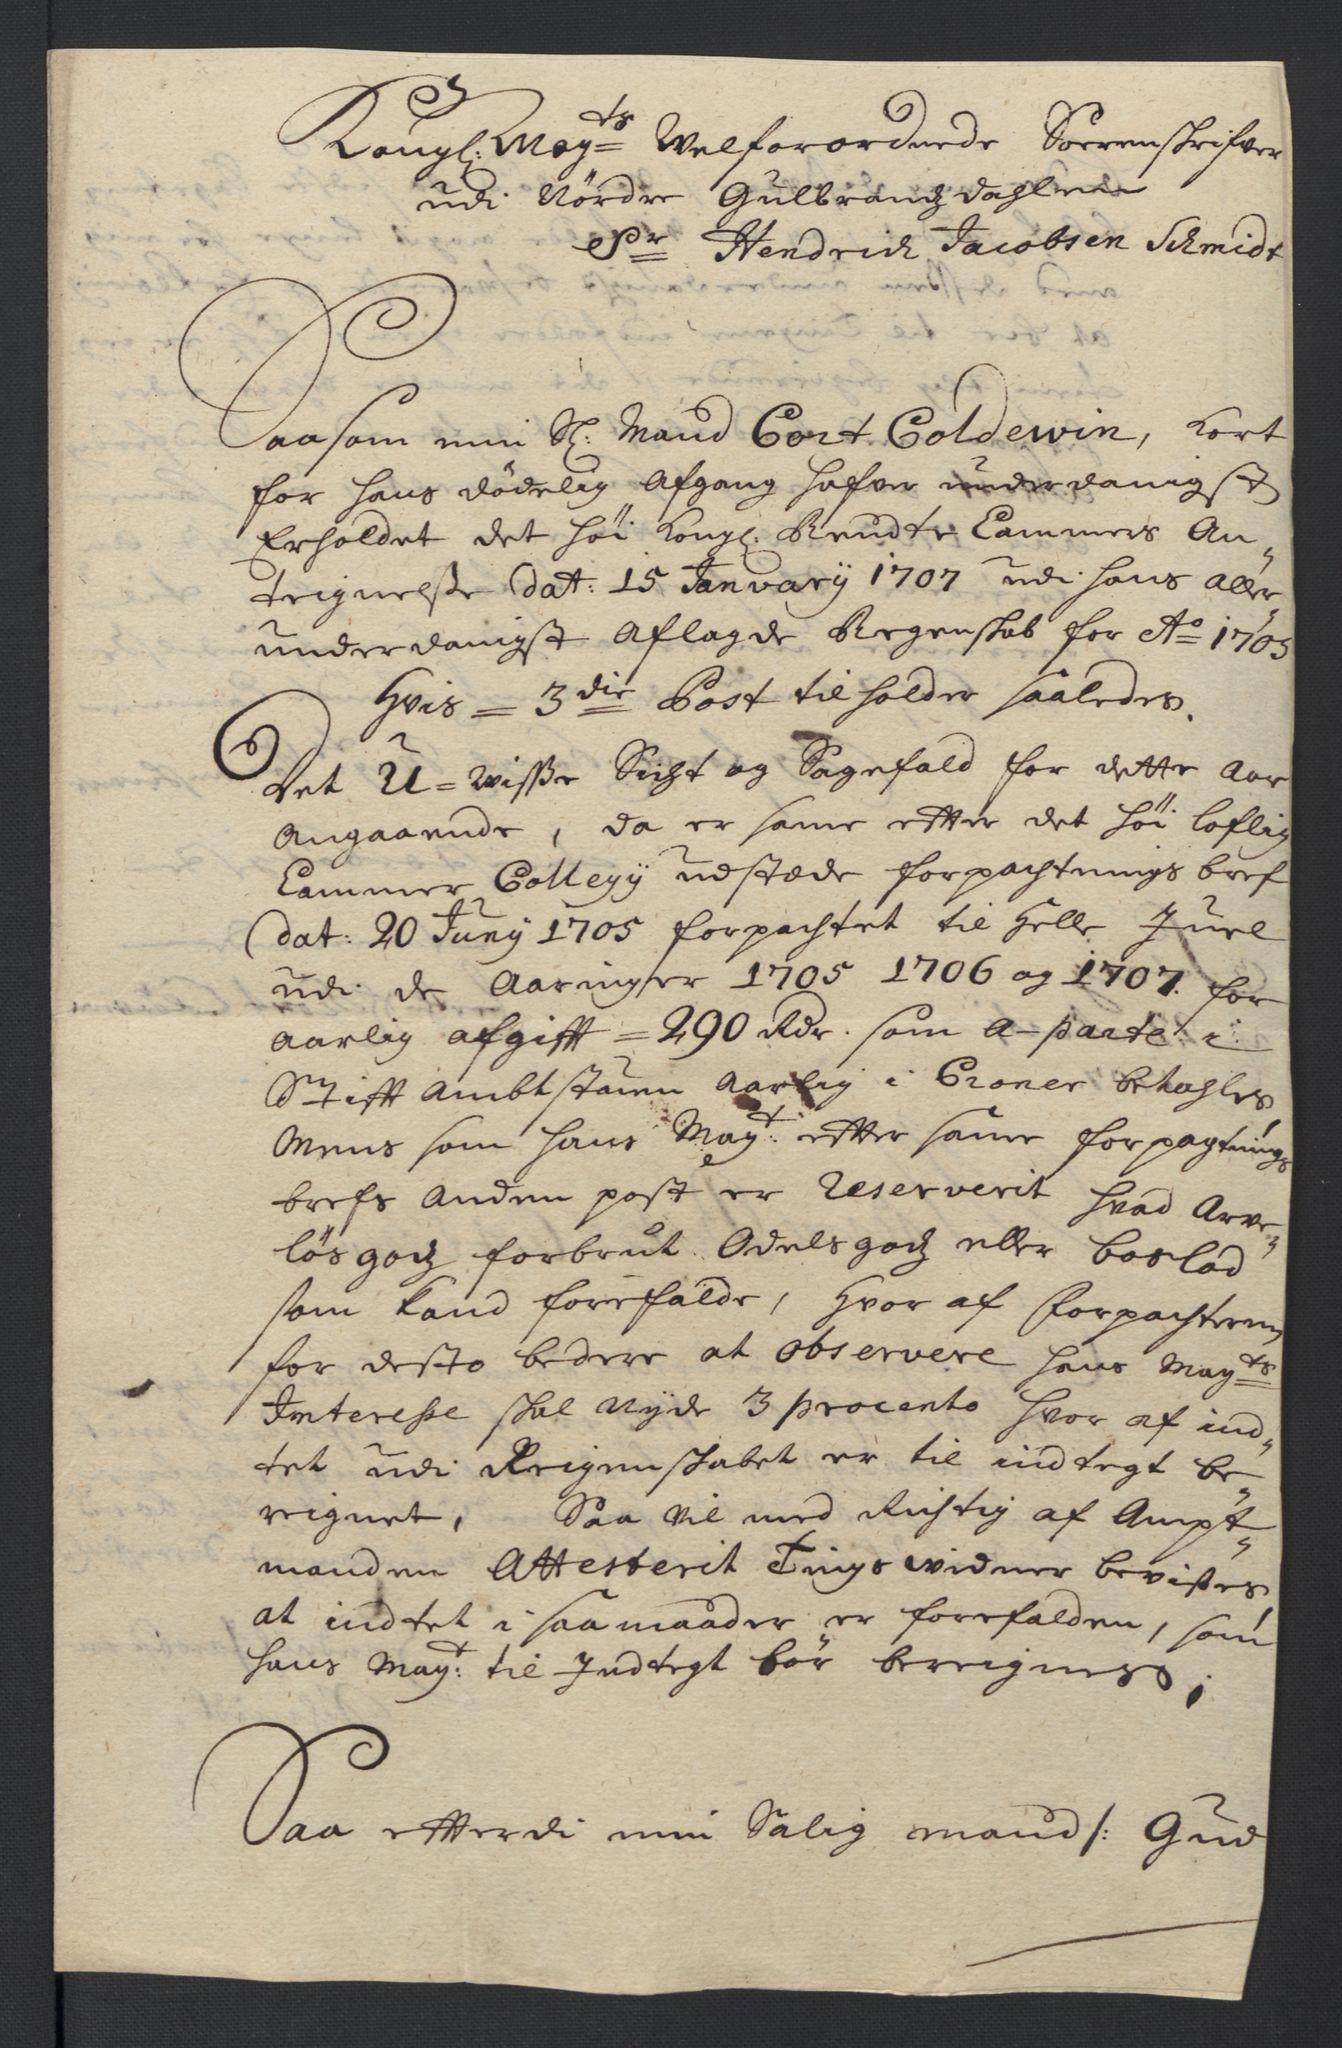 Kongl: Mayts Welforordnede Sorrenskrifver
udi Nördre Gulbrandz dahlen
Sr Hendrich Jacobsen Schmidt
Saasom min Sl: Mand Cort Coldewin, kort
for hans dödelig afgang hafver underdanigst
Erholdet det höi Kongl: Rendte Cammers An„
teignelsse dat: 15 January 1707 udi hans aller„
underdanigst aflagde Regenskab for Ao 1705
Hvis = 3die Post tilholder saaledes.
Det U=wisse Sicht og Sagefald for dette Aar
Angaaende, da er same efter det höi loflig
Cammer Collegy udstæde forpachtnings bref
dat: 20 Juny 1705 forpachtet til Helle Juel
udi de Aaringer 1705 1706 og 1707. for
aarlig afgifft = 290 Rdr. som a-parte i
Stifft Ambtstuen Aarlig i Croner betahles,
Mens som hans Mayt: efter same forpagtnings
brefs Anden post er Reserverit hvad Arve„
lös godz forbrut Odelsgodz eller boeslod
som kand forefalde, Hvor af Forpachteren
for desto bedere at observere hans Mayts
Interesse skal Nyde 3 procento hvor af ind„
tet udi Reigenskabet er til indtegt be„
reignet, Saa vil med Richtig af Ampt„
manden Attesterit Tings widner bevises,
at indtet i saa maader er forefalden, som
hans Mayt: til Indtegt bör bereignes;
Saa efterdi min Salig mand /: Gud